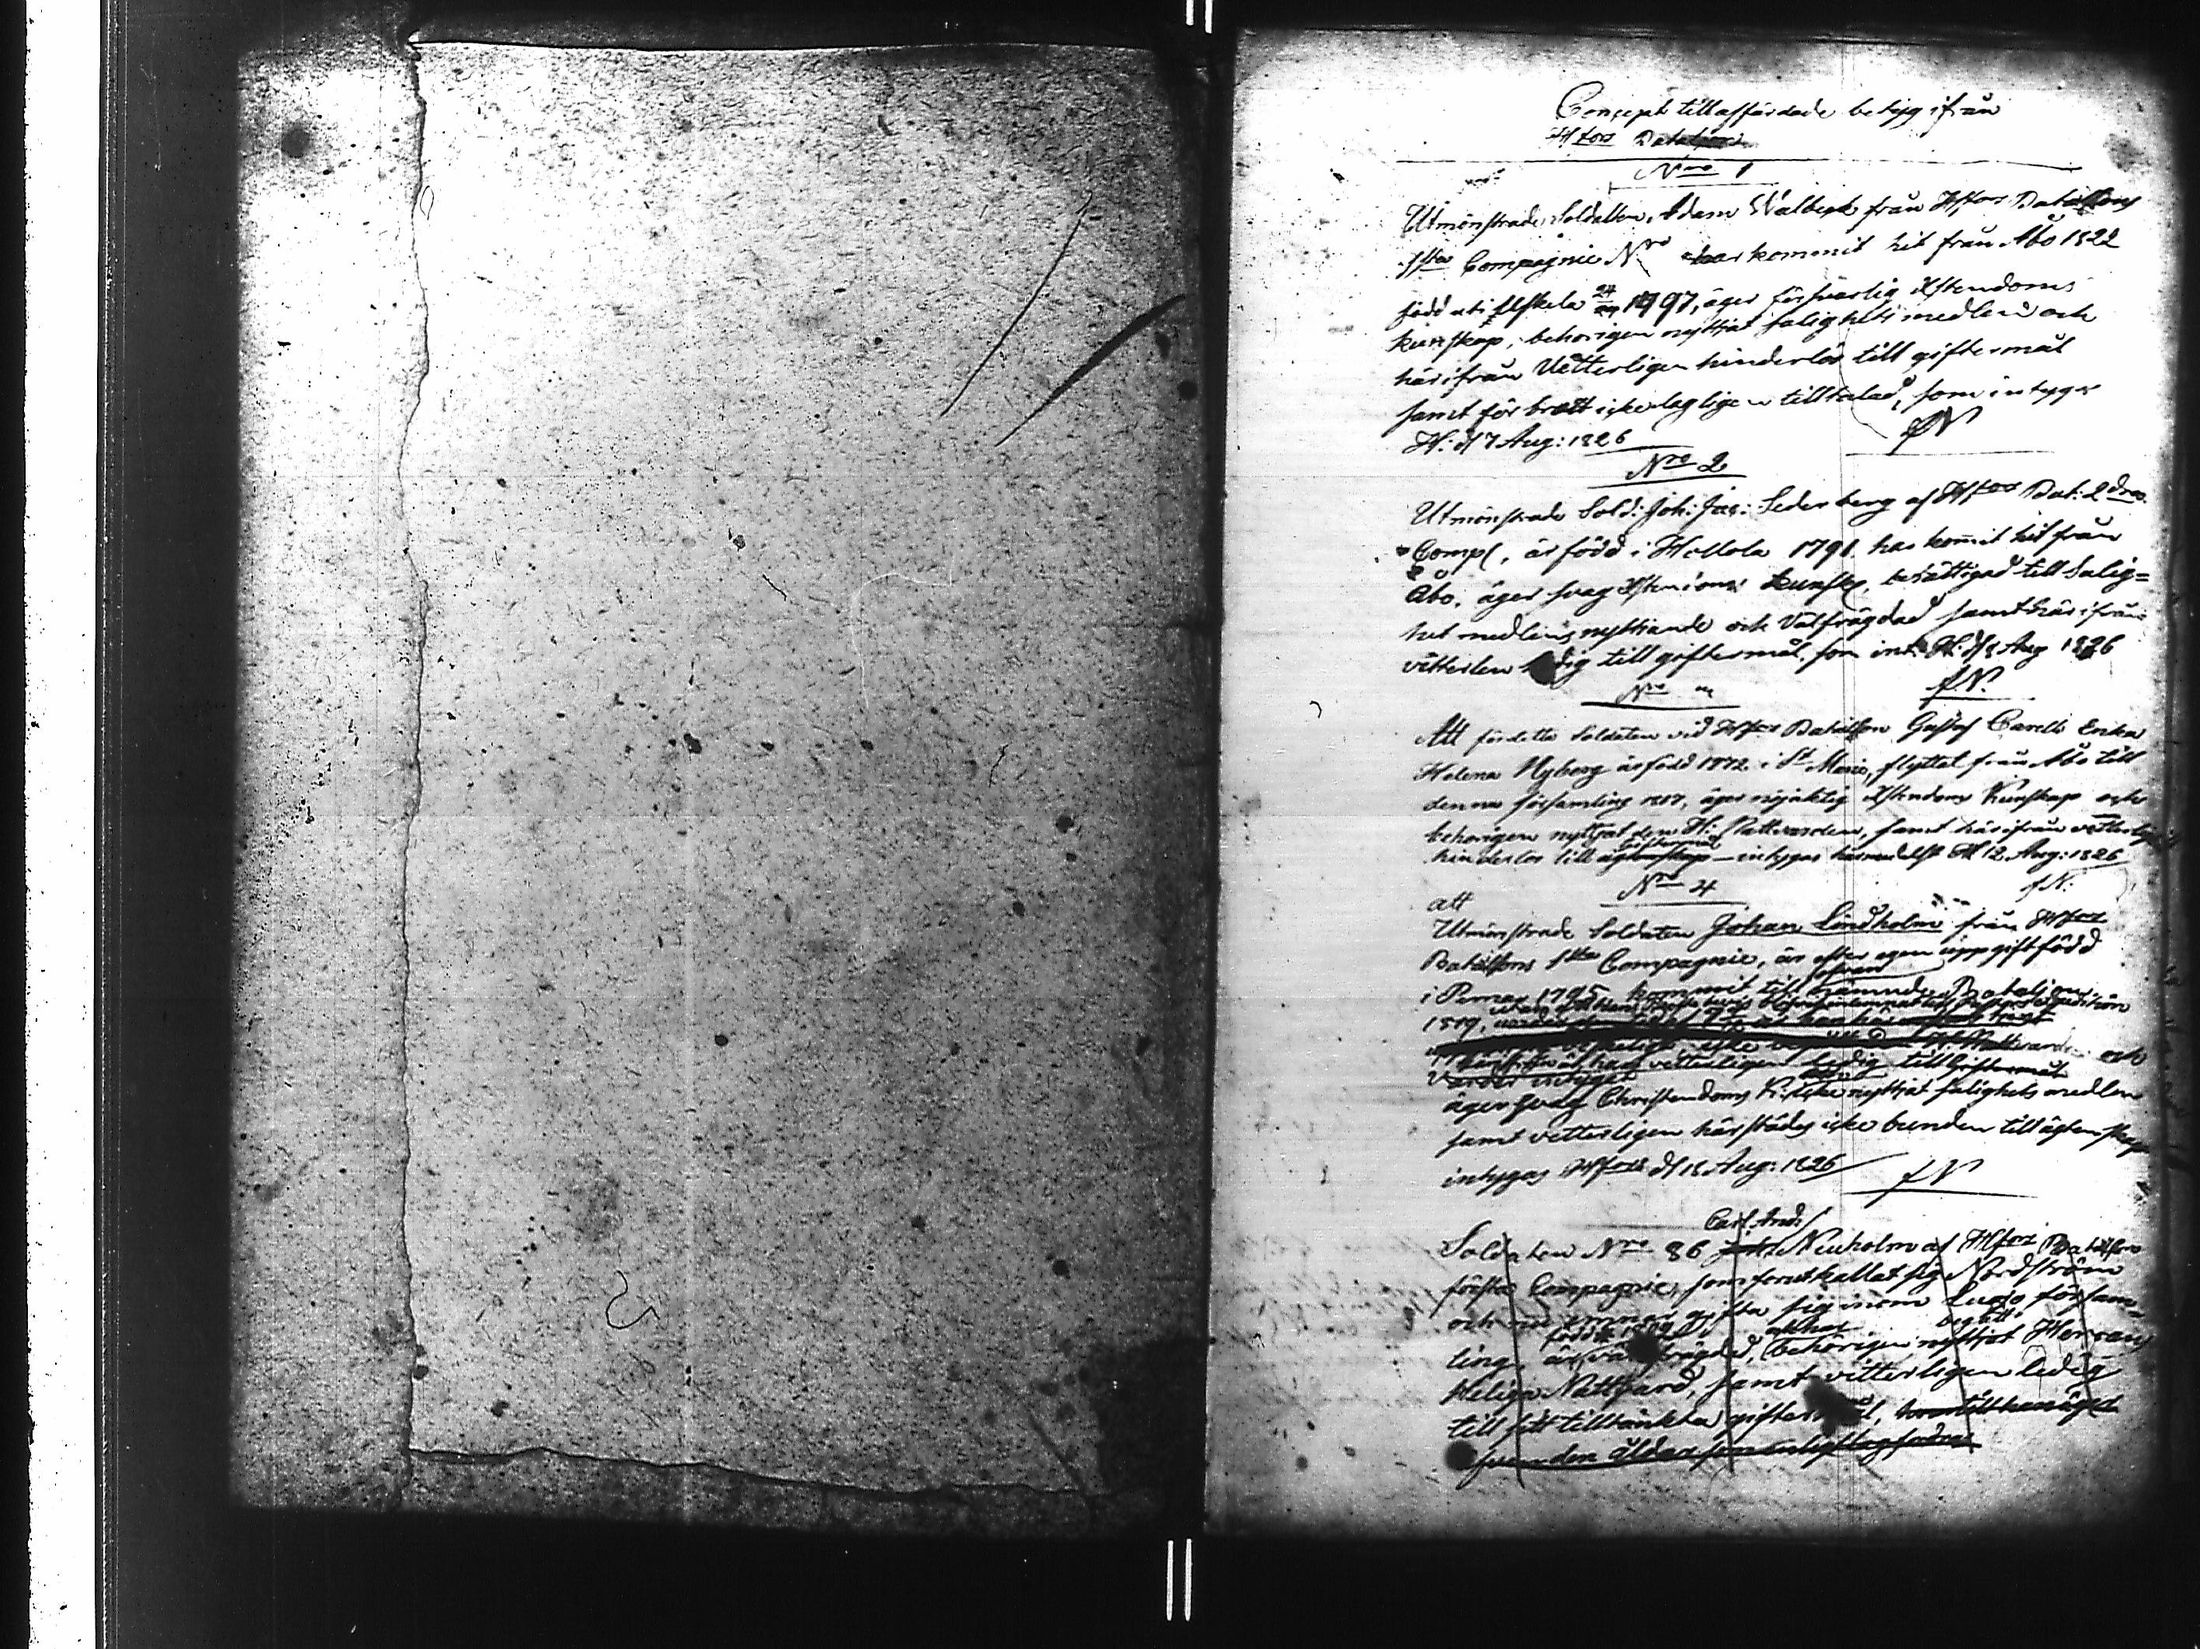 Concept till affärdade betyg ifrån
H:fors Bataljon
Nro 1
Utmönstrade Soldaten, Adam Walbeck från H:fors Batalljons
1sta Compagnie Nro har kommit hit från Åbo 1822
född uti 1797, äger försvarlig Xstendoms
kunskap, behörigen nyttjat salighets medlen och
härifrån Vetterligen hinderlös till giftermål
samt för brott icke lagligen tilltalad, som intygar
H: d 7 Aug: 1826
FN
Nro 2
Utmönstrade Sold: Joh: Jac: Sederberg af H:fors Bat: 2dra
Comp, är född i Hollola 1791. har komit hit från
Åbo, äger svag Xstendoms kunskp, berättigad till Salig=
het medlens nyttjande och Välfrägdad samt härifrån
vetterlen ledig till giftermål, som int: H: d 8 Aug 1826
F.N.
Nro 3
Att fördetta Soldaten vid H:fors Batalljon Gustaf Carells Enka
Helena Nyberg är född 1772 i St Marie, flyttat från Åbo till
denna församling 1817, äger nöjaktig Xstendoms Kunskap och
behörigen nyttjat den H: Nattvarden, samt härifrån vetterligen
giftermål
hinderlös till ägtenskap – intygas härmedelst H 12 Aug: 1826
FN:
Nro 4
att
Utmönstrade Soldaten Johan Lindholm från H:fors
Batalljons 1sta Compagnie, är efter egen uppgift född
i Pernå 1795, kommit till Batalion
1819,
vetterligen ledig till Giftermål
äger svag Christendoms K: icke nyttjat salighets medlen
samt vetterligen härstädes icke bunden till ägtenskap
intygas H:fors d 18 Aug: 1826
FN
Carl And
Soldaten Nro 86 Neuholm af H:fors Batalljons
första Compagnie, som förut kallat sig Nordström
och nu ämnar gifta sig inom Lojo försam=
född 1799 begått
ling, är välfrägdad, behörigen nyttjat Herrans
Heliga Nattvard, samt vitterligen ledig
till sitt tilltänkta giftermål,
den ålder som enligt lag fodras